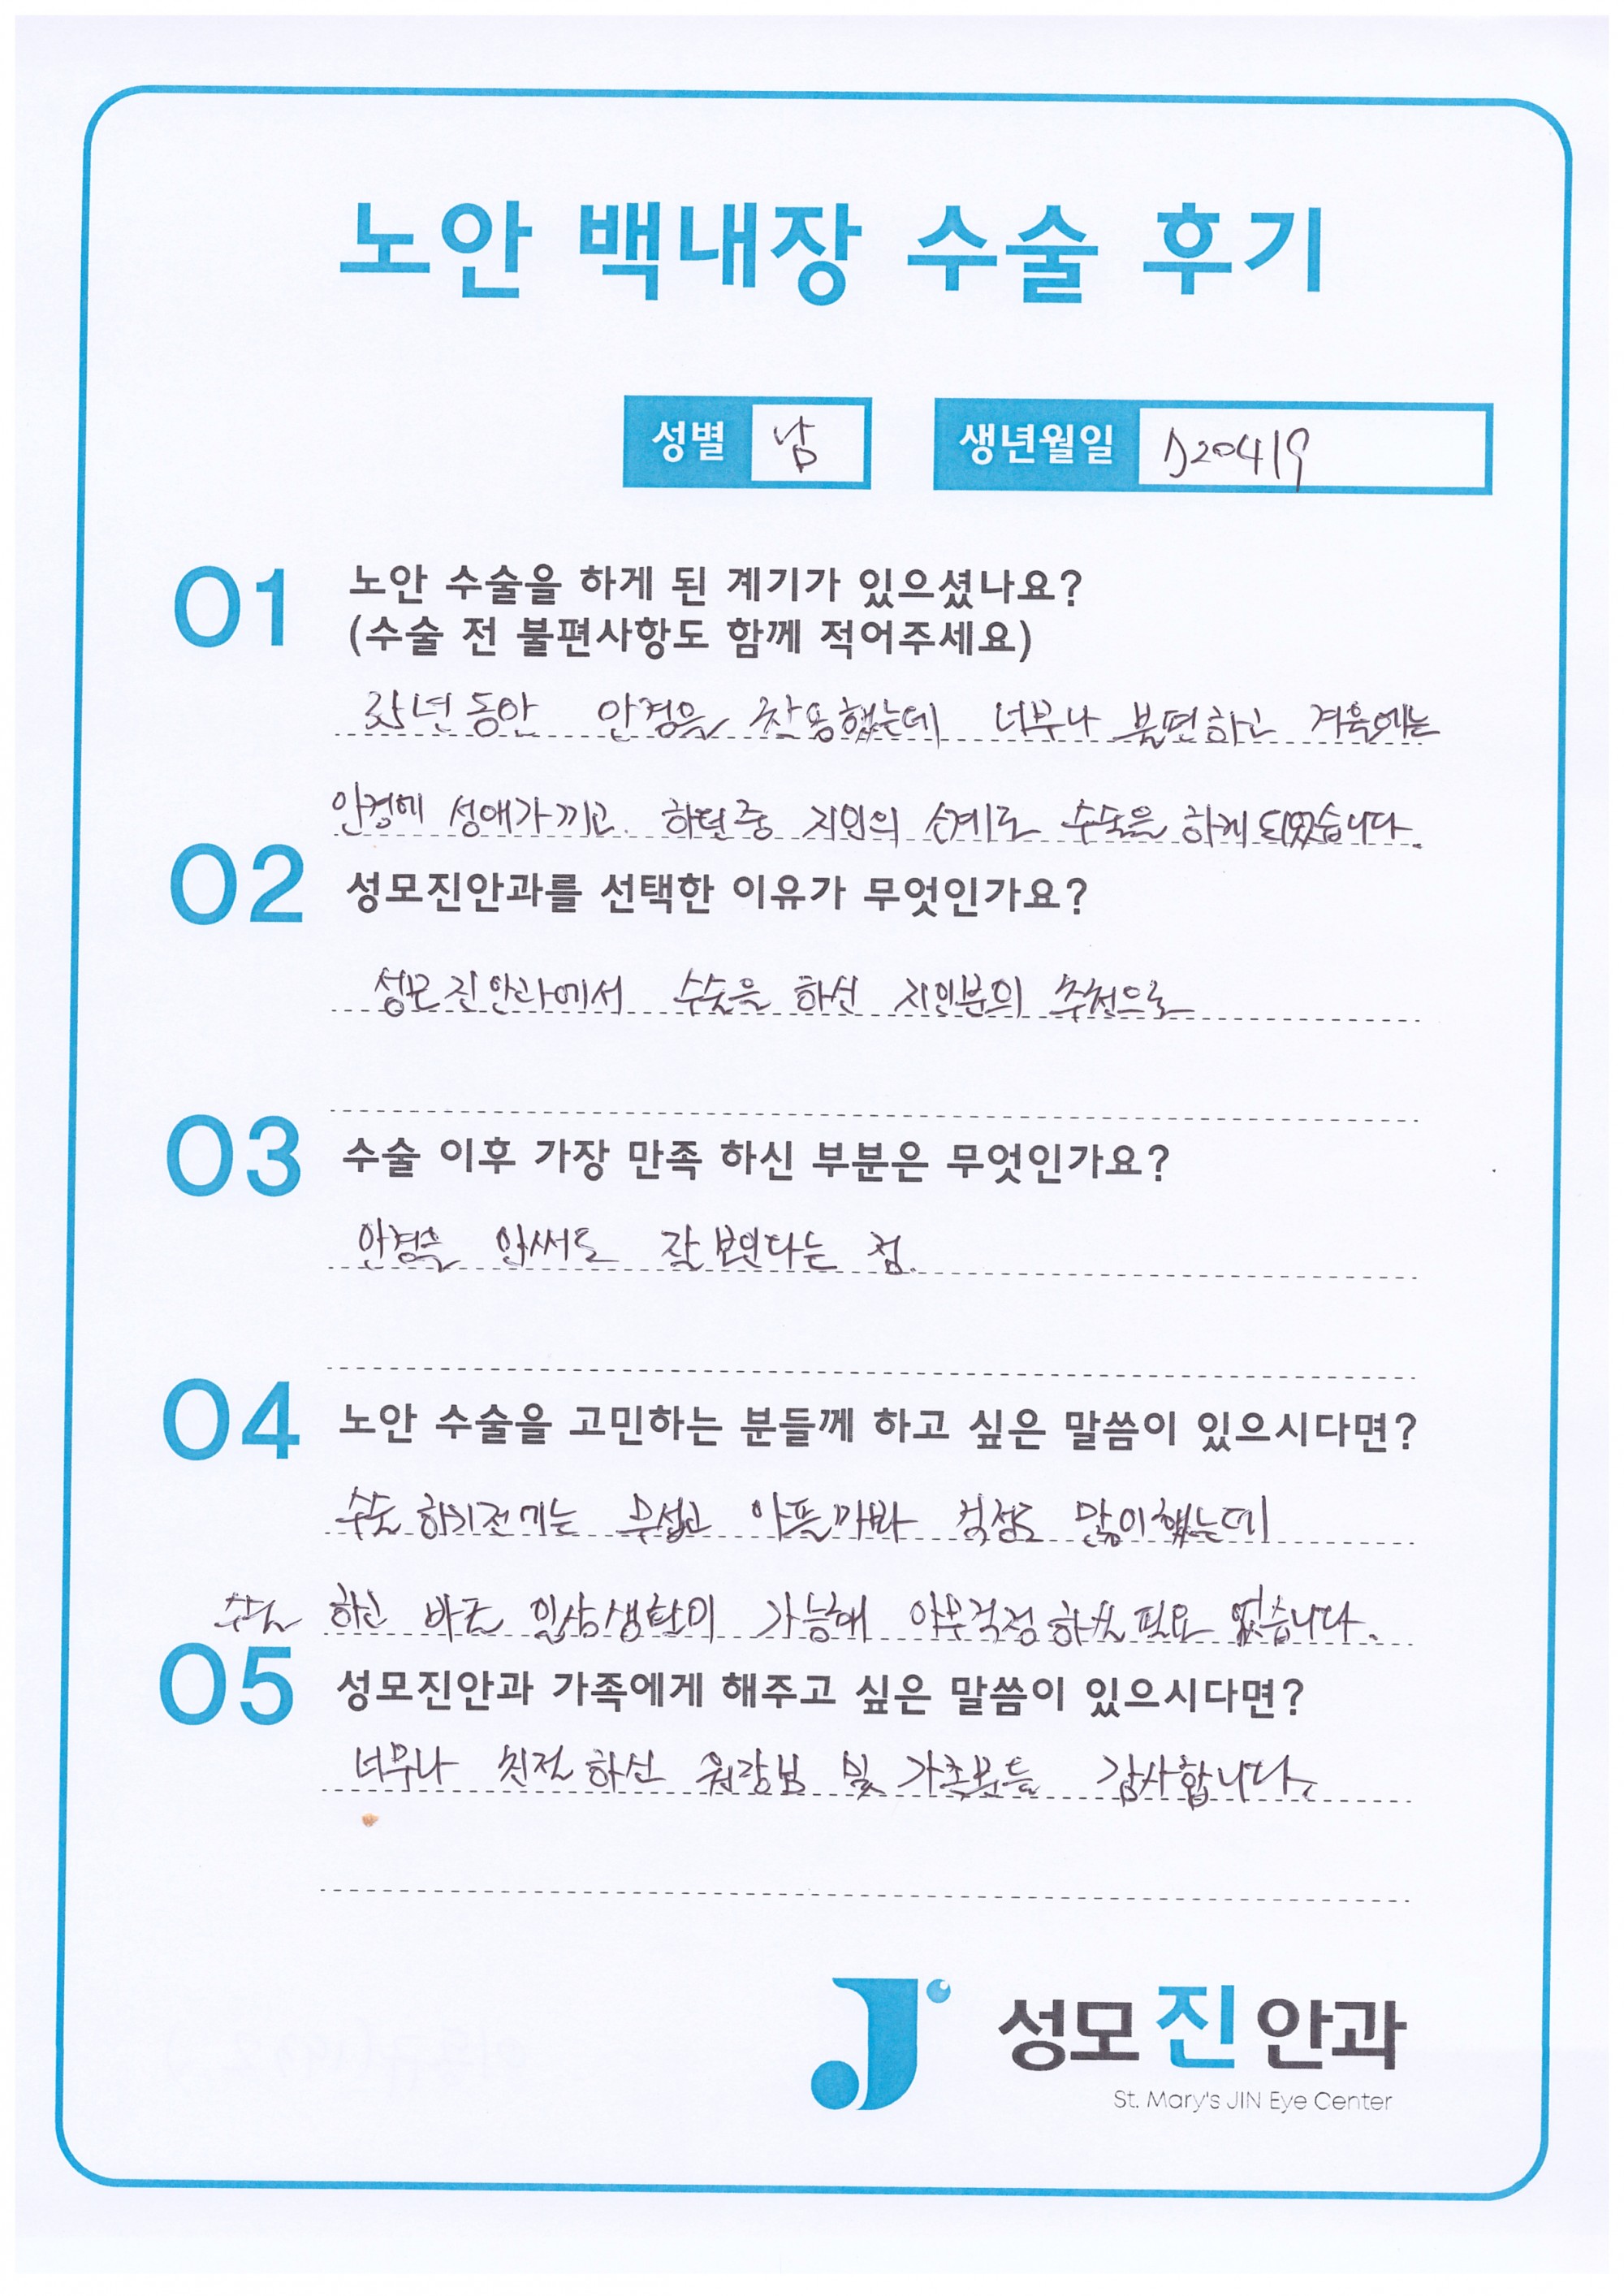 노안 백내장 수술 후기
성별 남 생년월일 720419
01 노안 수술을 하게 된 계기가 있으셨나요?
(수술 전 불편사항도 함께 적어주세요)
년동안 안경을 착용했는데 너무나 불편하고 겨울에는
안경에 성애가 끼고 하던중 지인의 소개로 수술을 하게 되었습니다.
02 성모진안과를 선택한 이유가 무엇인가요?
성모진안과에서 수술을 하신 지인분의 추천으로
03 수술 이후 가장 만족 하신 부분은 무엇인가요?
안경을 안써도 잘 보인다는 점.
04 노안 수술을 고민하는 분들께 하고 싶은 말씀이 있으시다면?
수술 하기전에는 무섭고 아플까봐 걱정도 많이했는데
수술 하고 바로 일상생활이 가능해 아무걱정 하실 필요 없습니다.
05 성모진안과 가족에게 해주고 싶은 말씀이 있으시다면?
너무나 친절하신 원장님 및 가족분들 감사합니다.
성모진안과
St. Mary's JIN Eye Center